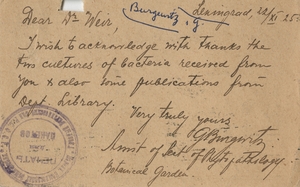 Burgwitz, G
Leningrad, 22/XI 25
Dear Dr. Weir,
I wish to acknowledge with thanks the
two cultures of bacteria received from
you & also some publications from
Dept. Library.
Very truly yours
G Burgwitz
Assist of Dept. of Phytopathology
Botanical Garden.